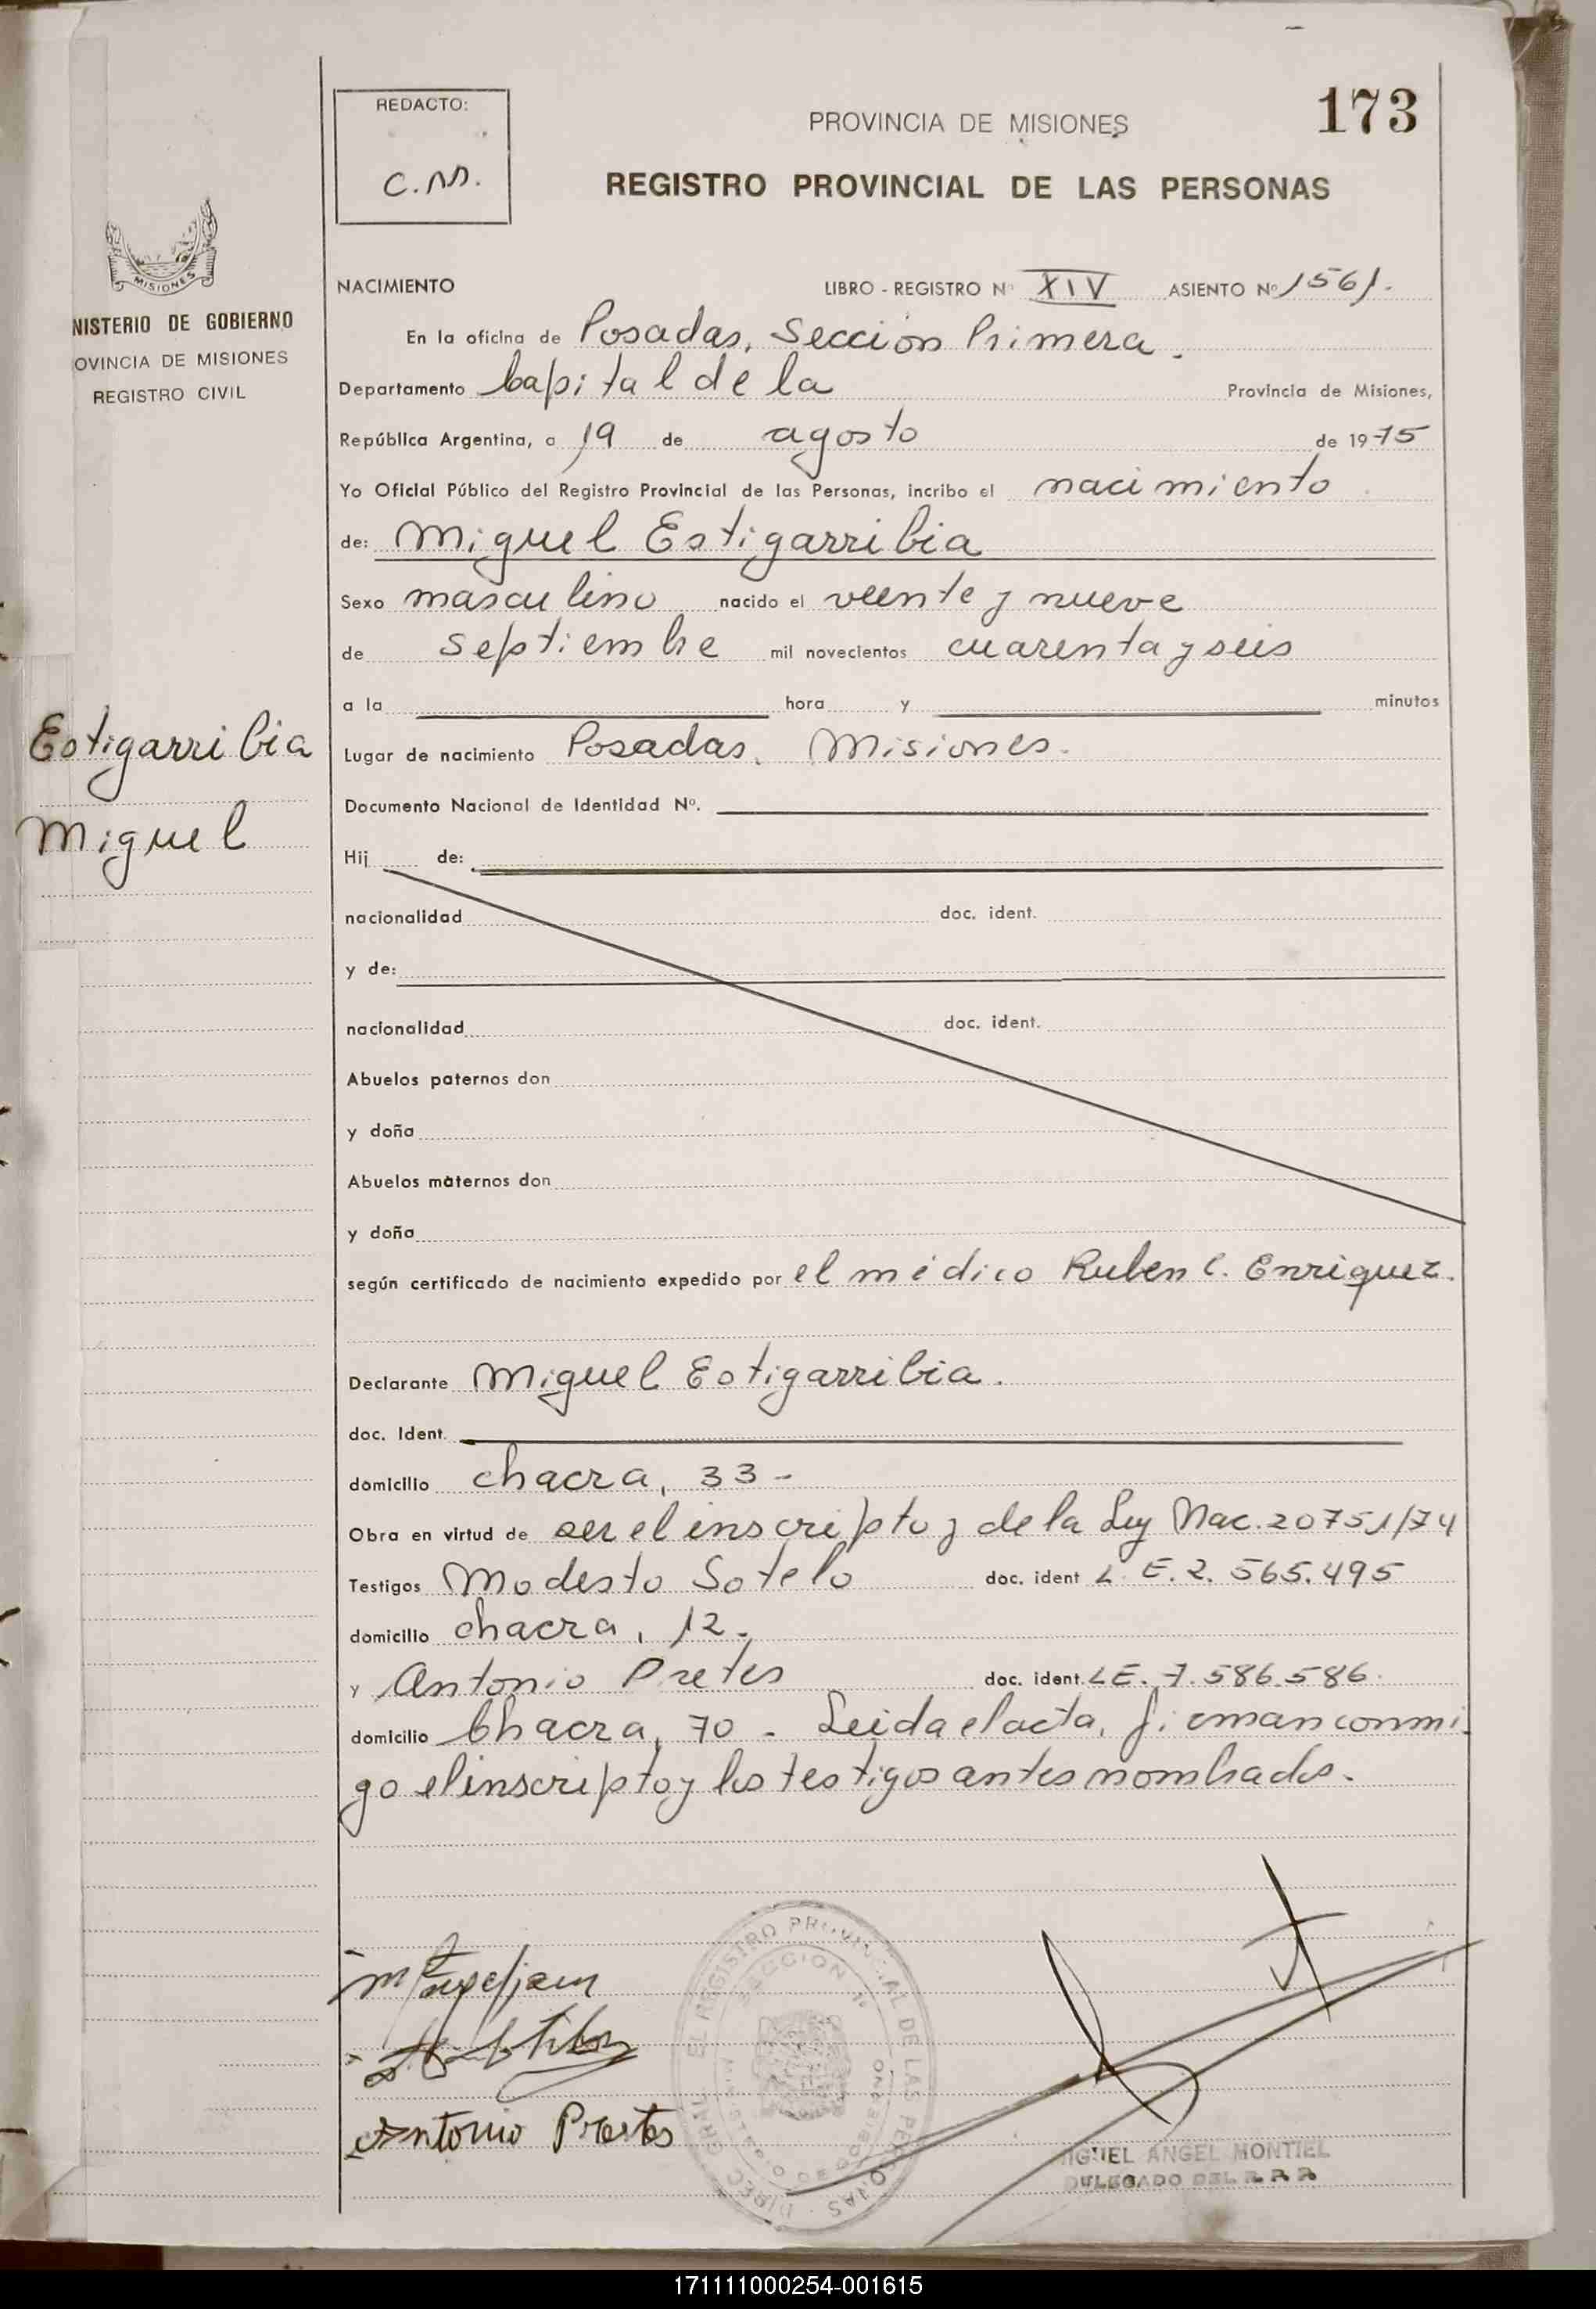 173
REDACTO:
C.M.
PROVINCIA DE MISIONES
REGISTRO PROVINCIAL DE LAS PERSONAS
MISIONES
NISTERIO DE GOBIERNO
OVINCIA DE MISIONES
REGISTRO CIVIL
NACIMIENTO LIBRO - REGISTRO Nº XIV ASIENTO Nº 1561.
En la oficina de Posadas, Sección Primera.
Departamento Capital de la Provincia de Misiones,
República Argentina, a 19 de agosto de 1975
Yo Oficial Público del Registro Provincial de las Personas, incribo el nacimiento
de: Miguel Estigarribia
Sexo masculino nacido el veinte y nueve
de septiembre mil novecientos cuarenta y seis
a la hora y minutos
Estigarribia
Miguel
Lugar de nacimiento Posadas, Misiones.
Documento Nacional de Identidad Nº.
Hij de:
nacionalidad doc. ident.
y de:
nacionalidad doc. ident.
Abuelos paternos don
y doña
Abuelos maternos don
y doña
según certificado de nacimiento expedido por el médico Ruben C. Enriquez.
Declarante Miguel Estigarribia.
doc. Ident.
domicilio chacra, 33-
Obra en virtud de ser el inscripto y de la Ley Nac. 20751/74
Testigos Modesto Sotelo doc. ident L. E. 2. 565.495
domicilio chacra, 12.
y Antonio Pretes doc. ident. LE. 7.586.586.
domicilio Chacra, 70 - Leida el acta, firman conmi
go el inscripto y los testigos antes nombrados.
Antonio Prestes
EL REGISTRO PROVINCIAL DE LAS PERSONAS - DIREC. GRAL.
SECCION 1ª
MINISTERIO DE GOBIERNO
MIGUEL ANGEL MONTIEL
DELEGADO DEL R. P. P.
171111000254-001615